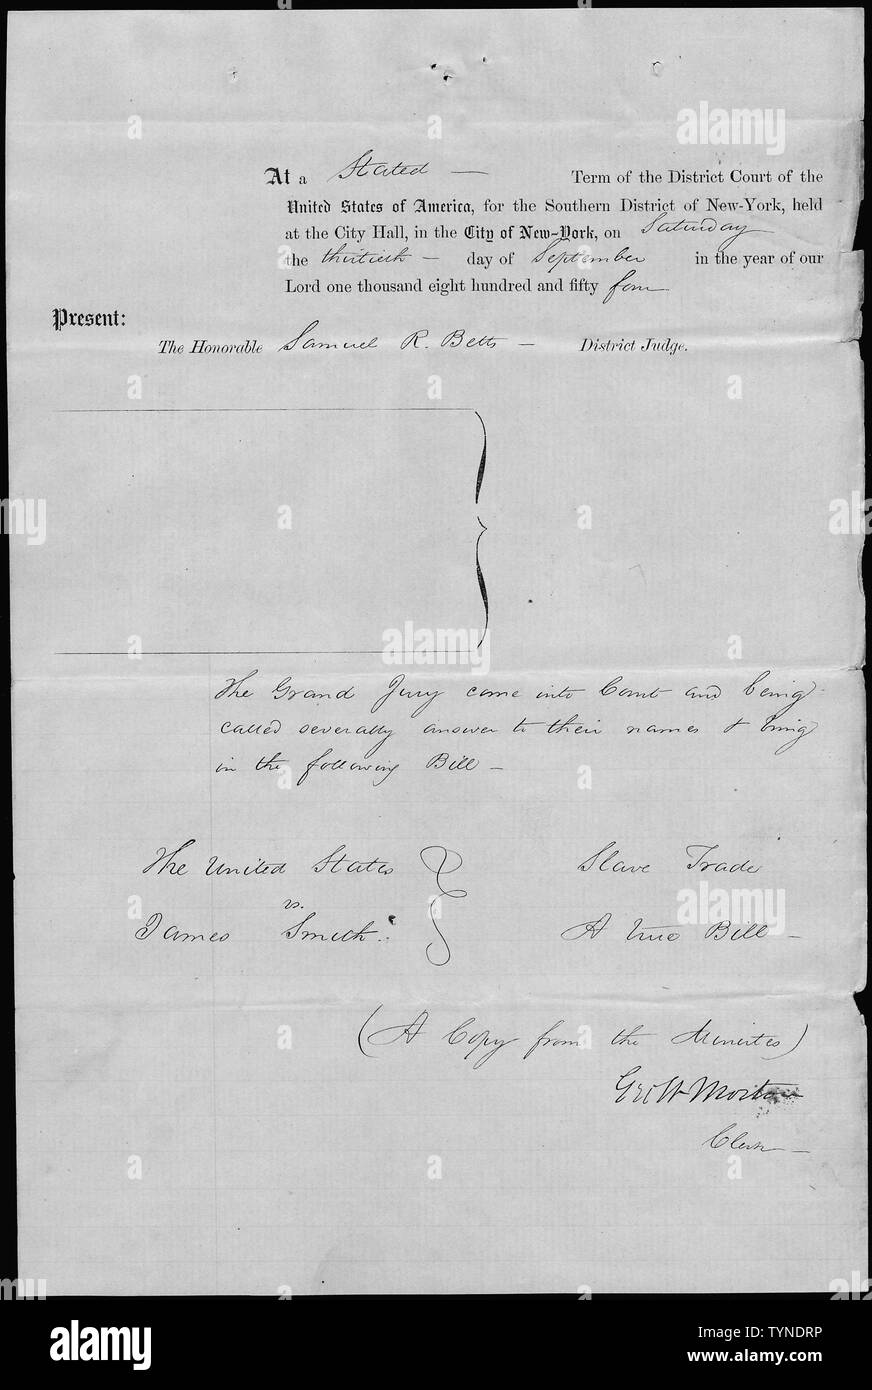 At a Stated — Term of the District Court of the
United States of America, for the Southern District of New-York, held
at the City Hall, in the City of New-York, on Saturday
the thirtieth — day of September in the year of our
Lord one thousand eight hundred and fifty four
Present:
The Honorable Samuel R. Betts — District Judge.
The Grand Jury come into Court and being
called severally answer to their names & bring
in the following Bill —
The United States Slave Trade
vs.
James Smith. A true Bill —
(A Copy from the Minutes)
Geo W Morton
Clerk —
a alamy
alamy
Image ID: TYNDRP
www.alamy.com